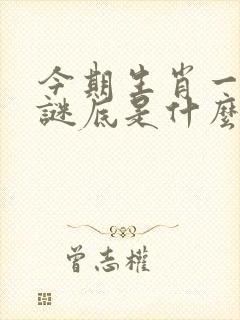 今期生肖一
謎底是什麼
曾志權